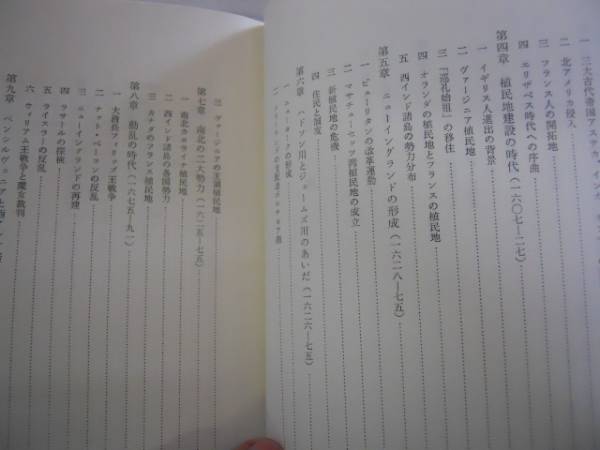 一 三大古代帝国アステカ、インカ、
二 北アメリカ侵入
三 フランス人の開拓地
四 エリザベス時代への序曲
第四章 植民地建設の時代(一六〇七―二七)
一 イギリス人進出の背景
二 ヴァージニア植民地
三 『巡礼始祖』の移住
四 オランダの植民地とフランスの植民地
五 西インド諸島の勢力分布
第五章 ニューイングランドの形成(一六二八―七五)
一 ピューリタンの改革運動
二 マサチューセッツ湾植民地の成立
三 新植民地の危機
四 住民と加友
第六章 ハドソン川とジェームズ川のあいだ(一六二六―七五)
一 ニューヨークの形成
三 ヴァージニアの王領植民地
第七章 南北の二大勢力(一六二五―七五)
一 南北カロライナ植民地
二 西インド諸島の各国勢力
三 カナダのフランス植民地
第八章 動乱の時代(一六七五―九一)
一 大酋長フィリップ王戦争
二 ナット・ベーコンの反乱
三 ニューイングランドの再建
四 ラサールの探検
五 ライスラーの反乱
六 ウィリアム王戦争と魔女裁判
第九章 ペンシルヴェニアと